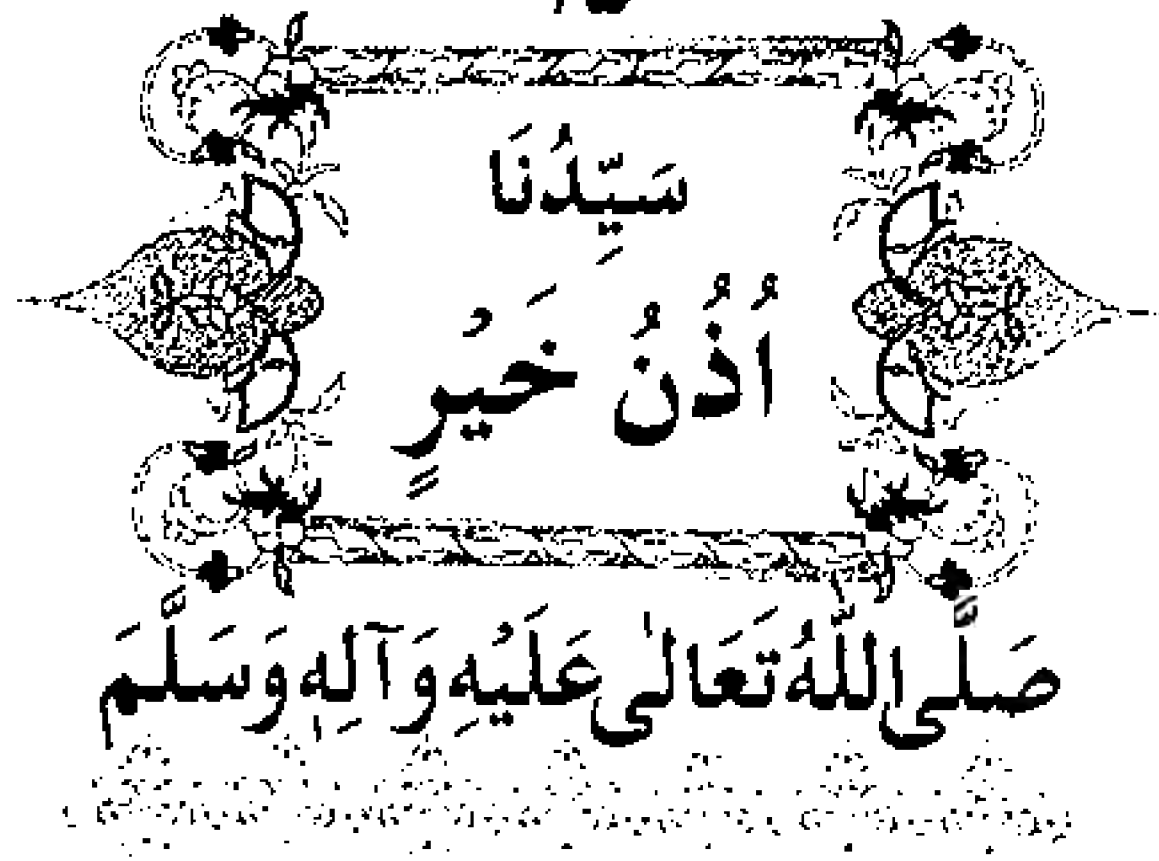 سَيِّدُنَا
اُذُنُ خَيْرٍ
صَلَّى اللّٰهُ تَعَالٰى عَلَيْهِ وَآلِهٖ وَسَلَّمَ